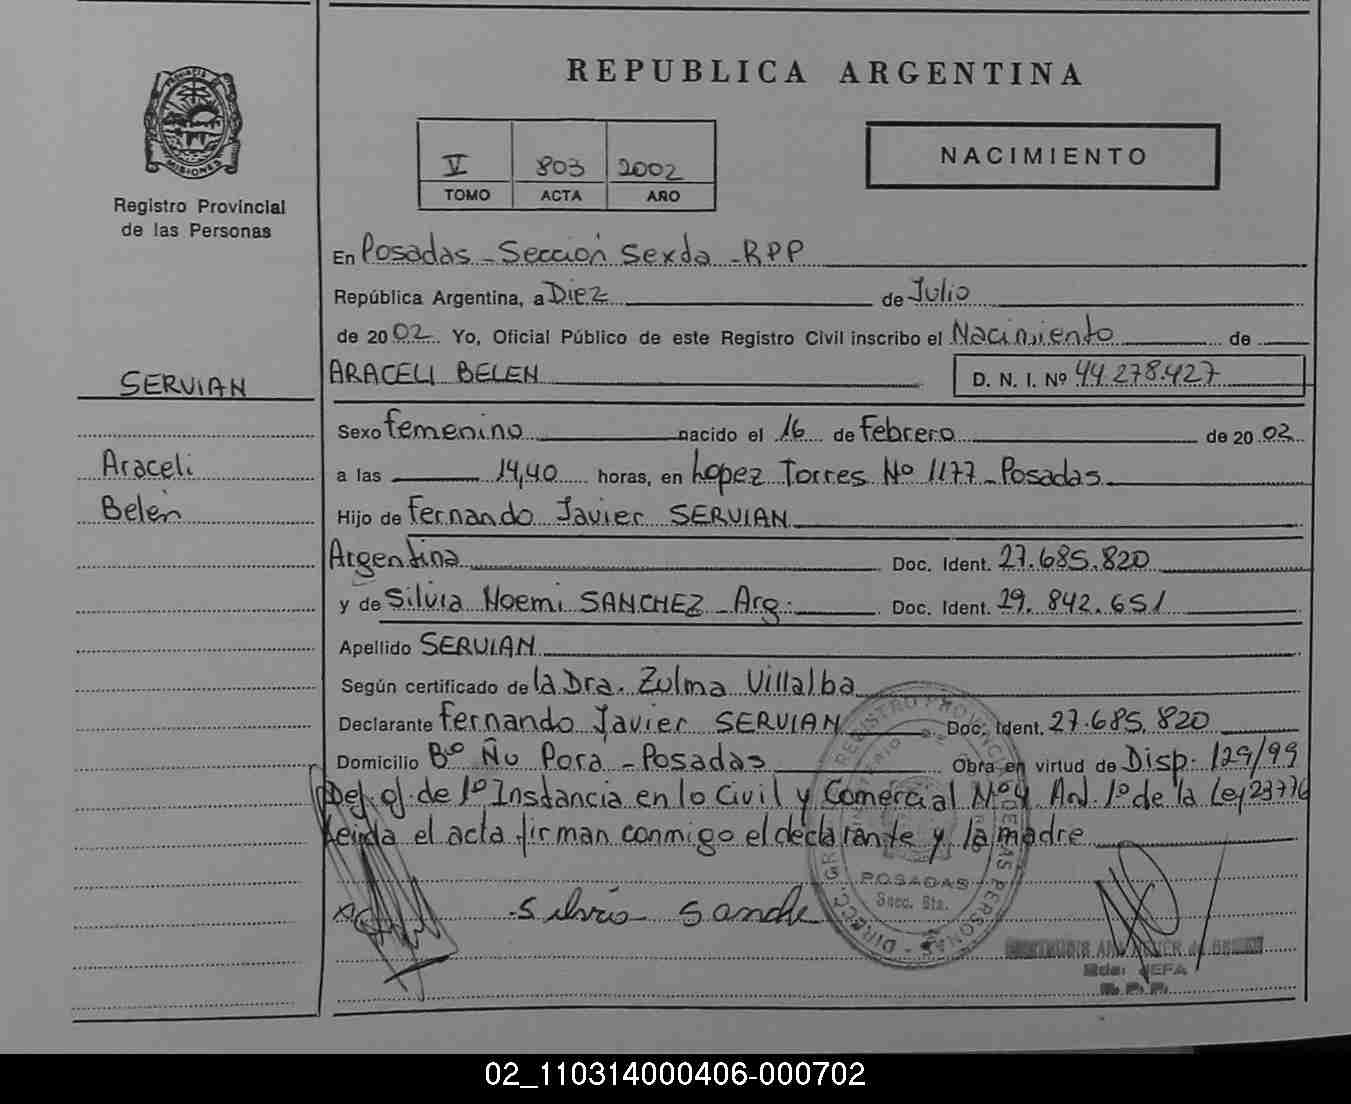 REPUBLICA ARGENTINA
PROVINCIA DE MISIONES
Registro Provincial
de las Personas
V 803 2002
TOMO ACTA AÑO
NACIMIENTO
En Posadas - Sección Sexda - RPP
República Argentina, a Diez de Julio
de 2002. Yo, Oficial Público de este Registro Civil inscribo el Nacimiento de
SERVIAN
Araceli
Belén
ARACELI BELEN D. N. I. Nº 44.278.427
Sexo femenino nacido el 16 de Febrero de 2002
a las 14,40 horas, en Lopez Torres Nº 1177 - Posadas
Hijo de Fernando Javier SERVIAN
Argentina Doc. Ident. 27.685.820
y de Silvia Noemi SANCHEZ - Arg. Doc. Ident. 29.842.651
Apellido SERVIAN
Según certificado de la Dra. Zulma Villalba
Declarante Fernando Javier SERVIAN Doc. Ident. 27.685.820
Domicilio Bº Ñu Pora - Posadas Obra en virtud de Disp. 129/99
Def. of. de 1º Instancia en lo Civil y Comercial Nº 4 Art. 1º de la Ley 23776
Leida el acta firman conmigo el declarante y la madre
Silvia Sanche
POSADAS
Secc. 6ta.
JEFA
R.P.P.
02_110314000406-000702